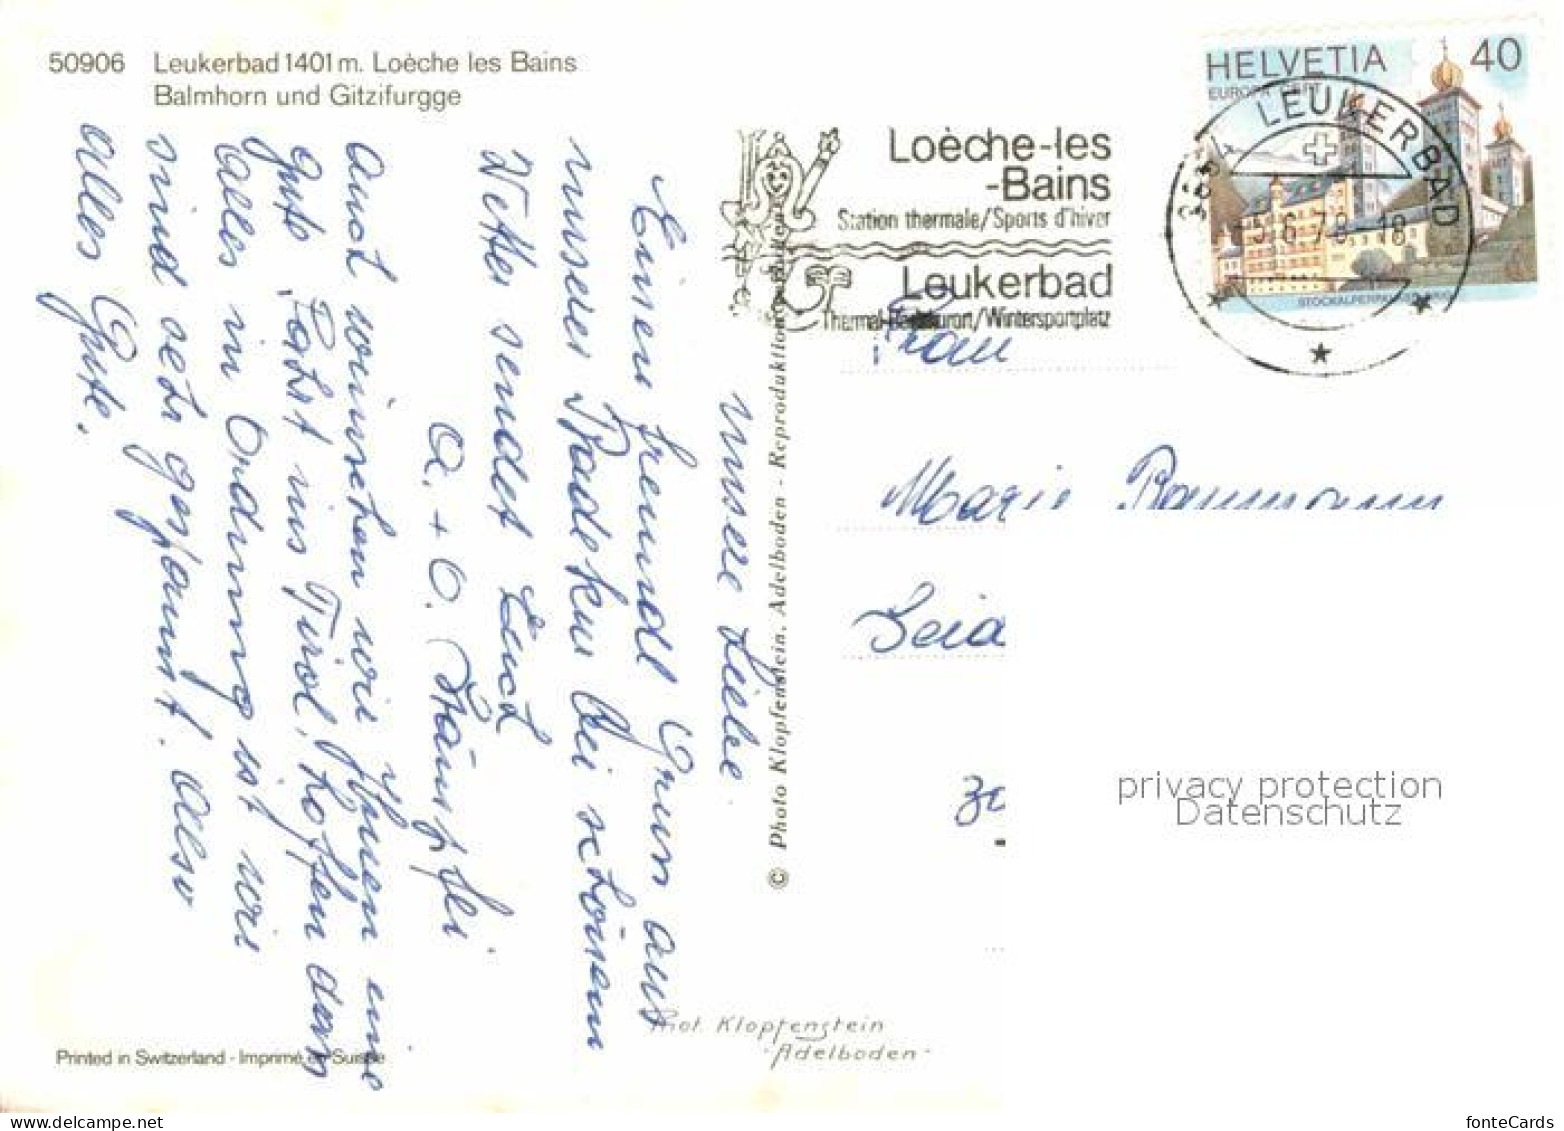 50906 Leukerbad 1401 m. Loèche les Bains
Balmhorn und Gitzifurgge
HELVETIA 40
EUROPA CEPT
LEUKERBAD
5.6.78 18
STOCKALPERPALAST BRIG
Loèche-les
-Bains
Station thermale/Sports d'hiver
Leukerbad
Thermal-Badekurort/Wintersportplatz
unsere Liebe.
Einen freundl Gruss aus
unserer Badekur bei schönem
Wetter sendet Euch
A. + O. Stämpfli
Auch wünschen wir Ihnen eine
gute Fahrt ins Tirol, hoffen dass
alles in Ordnung ist wir
sind sehr gespannt. Also
alles Gute.
© Photo Klopfenstein, Adelboden - Reproduktion
Frau
Marie Baumann
Seid
30
privacy protection
Datenschutz
Phot. Klopfenstein
Adelboden
Printed in Switzerland - Imprimé en Suisse
fonteCards